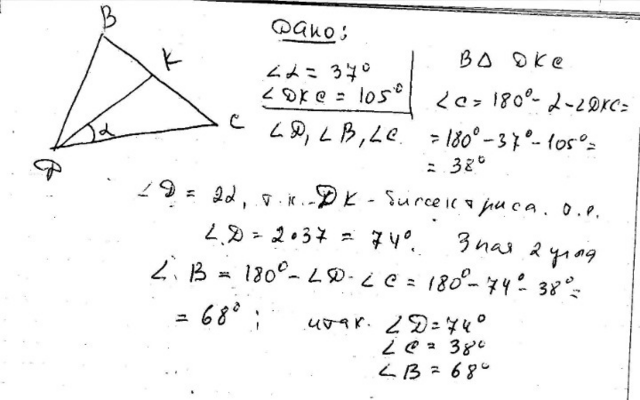 B
K
C
D
α
Дано:
∠α = 37°
∠DKC = 105°
∠D, ∠B, ∠C.
В Δ DKC
∠C = 180° - α - ∠DKC =
= 180° - 37° - 105° =
= 38°
∠D = 2α, т.к. DK - биссектриса. т.е.
∠D = 2•37 = 74°. Зная 2 угла
∠B = 180° - ∠D - ∠C = 180° - 74° - 38° =
= 68°; итак. ∠D = 74°
∠C = 38°
∠B = 68°